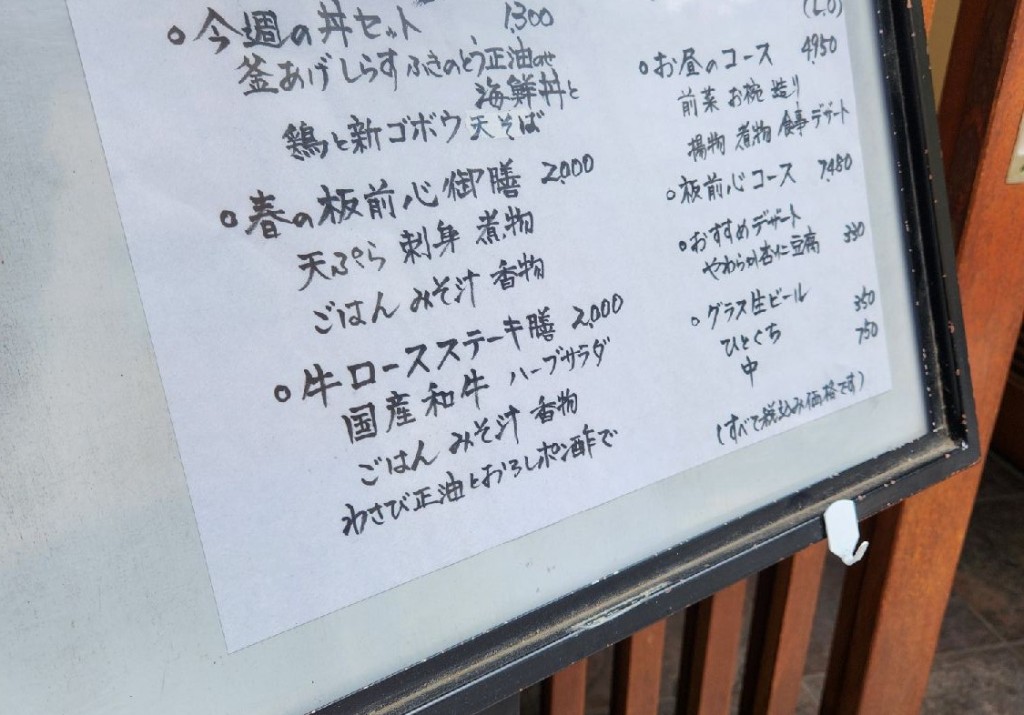 ○今週の丼セット 1300
釜あげしらすふきのとう正油のせ
海鮮丼と
鶏と新ゴボウ天そば
○春の板前心御膳 2,000
天ぷら 刺身 煮物
ごはん みそ汁 香物
○牛ロースステーキ膳 2,000
国産和牛 ハーブサラダ
ごはん みそ汁 香物
わさび正油とおろしポン酢で
(L.O)
○お昼のコース 4950
前菜 お椀 造り
揚物 煮物 食事 デザート
○板前心コース 7480
○おすすめデザート
やわらか杏仁豆腐 330
○グラス生ビール
ひとくち 350
中 750
(すべて税込み価格です)